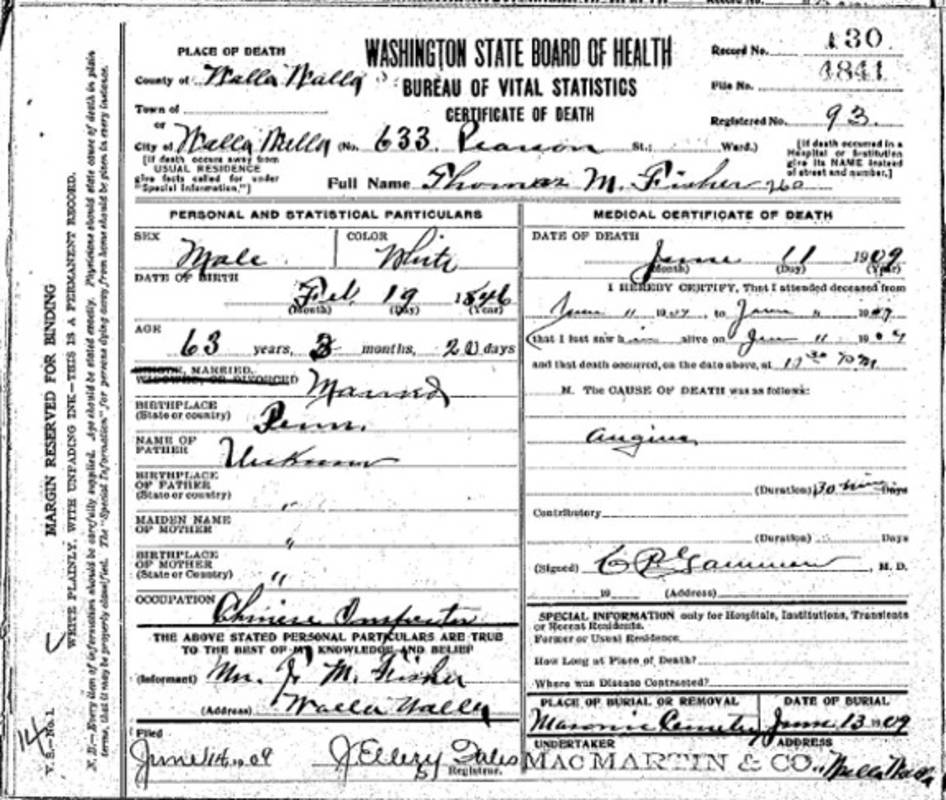 WASHINGTON STATE BOARD OF HEALTH
BUREAU OF VITAL STATISTICS
CERTIFICATE OF DEATH
Record No. 130
File No. 4841
Registered No. 93.
PLACE OF DEATH
County of Walla Walla
Town of
or
City of Walla Walla (No. 633 Pearson St.; Ward.)
[If death occurs away from
USUAL RESIDENCE
give facts called for under
"Special Information,"]
[If death occurred in a
Hospital or Institution
give its NAME instead
of street and number.]
Full Name Thomas M. Fisher
PERSONAL AND STATISTICAL PARTICULARS
SEX Male
COLOR White
DATE OF BIRTH
Feb. 19 1846
(Month) (Day) (Year)
AGE
63 years, 3 months, 20 days
SINGLE, MARRIED,
WIDOWED, OR DIVORCED Married
BIRTHPLACE
(State or country) Penn.
NAME OF
FATHER Unknown
BIRTHPLACE
OF FATHER
(State or country) "
MAIDEN NAME
OF MOTHER "
BIRTHPLACE
OF MOTHER
(State or Country) "
OCCUPATION Chinese Inspector
THE ABOVE STATED PERSONAL PARTICULARS ARE TRUE
TO THE BEST OF MY KNOWLEDGE AND BELIEF
(Informant) Mrs. T. M. Fisher
(Address) Walla Walla
Filed
June 14, 1909 J Ellezy Fales
Registrar.
MEDICAL CERTIFICATE OF DEATH
DATE OF DEATH
June 11 1909
(Month) (Day) (Year)
I HEREBY CERTIFY, That I attended deceased from
June 11 1909, to June 11 1909
that I last saw him alive on June 11 1909
and that death occurred, on the date above, at
M. The CAUSE OF DEATH was as follows:
Angina
(Duration) 30 min Days
Contributory
(Duration) Days
(Signed) M. D.
19 (Address)
SPECIAL INFORMATION only for Hospitals, Institutions, Transients
or Recent Residents.
Former or Usual Residence
How Long at Place of Death?
Where was Disease Contracted?
PLACE OF BURIAL OR REMOVAL
Masonic Cemetery
DATE OF BURIAL
June 13 1909
UNDERTAKER
MACMARTIN & CO.,
ADDRESS
Walla Walla
MARGIN RESERVED FOR BINDING
WRITE PLAINLY, WITH UNFADING INK—THIS IS A PERMANENT RECORD.
N. B.—Every item of information should be carefully supplied. Age should be stated exactly. Physicians should state cause of death in plain
terms, that it may be properly classified. The "Special Information" for persons dying away from home should be given in every instance.
V. S.—No. 1.
14